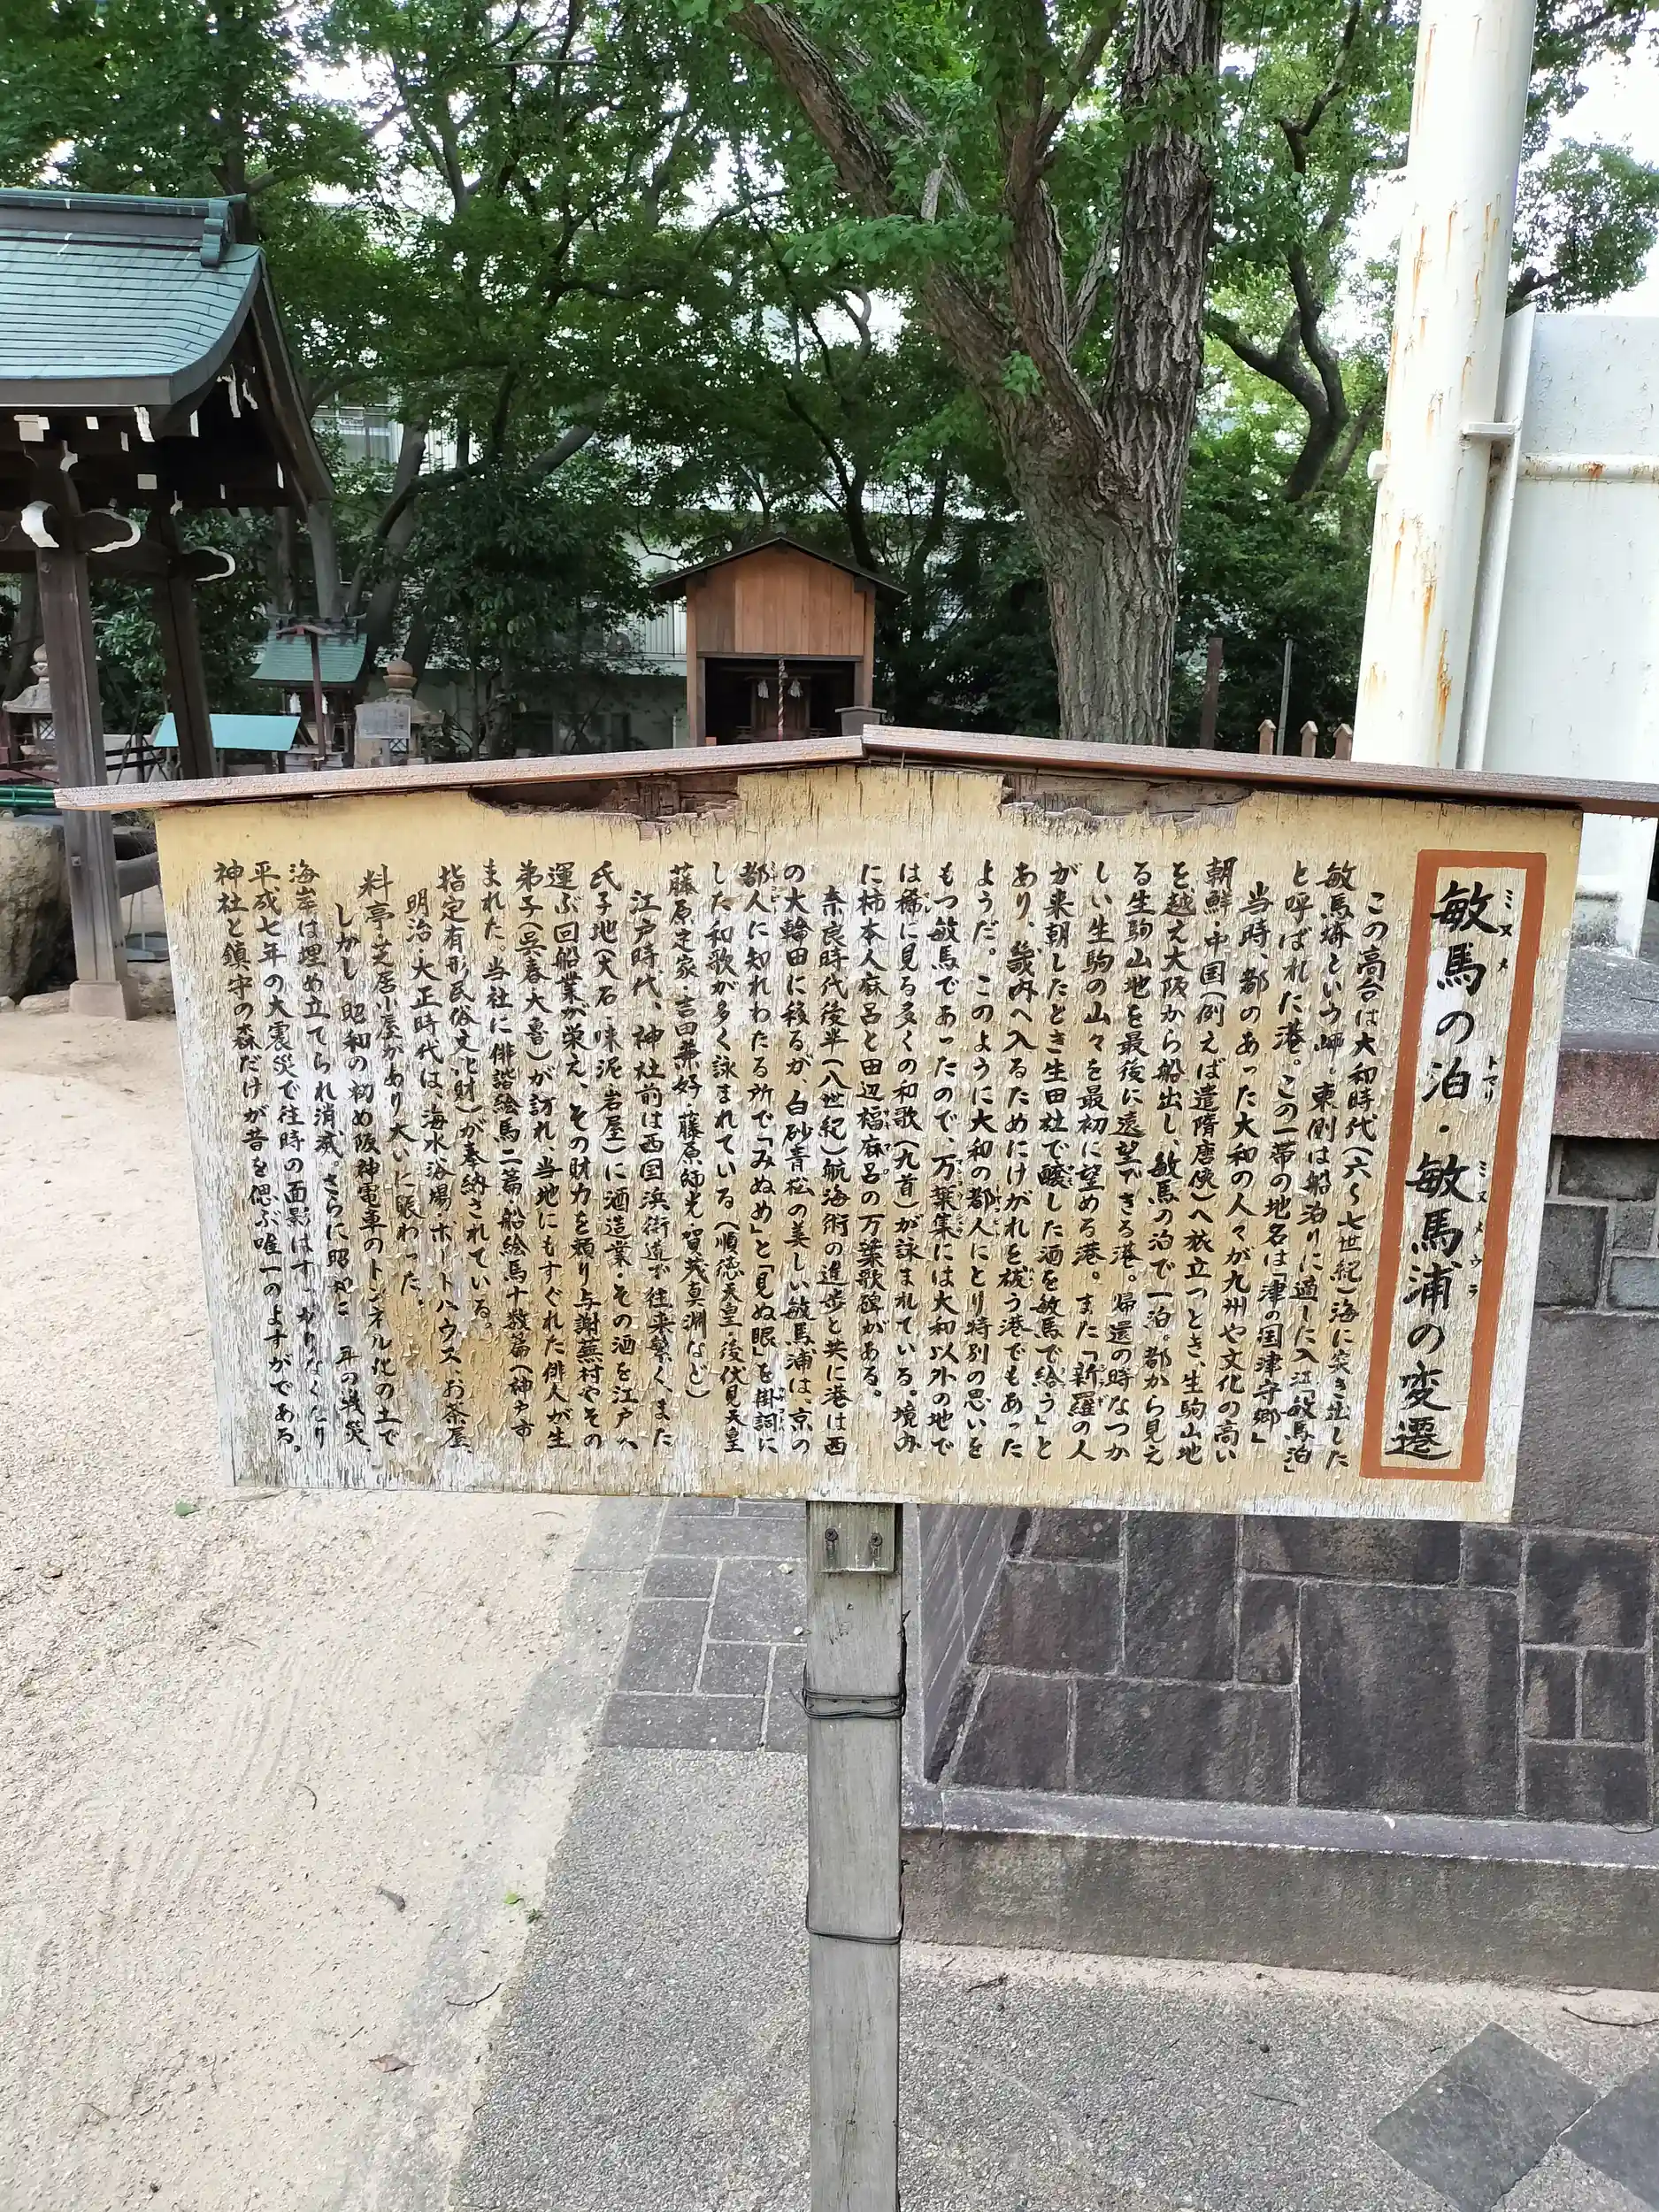 敏馬の泊・敏馬浦の変遷
ミヌメ トマリ ミヌメウラ
この高台は大和時代(六〜七世紀)海に突き出した
敏馬埼という岬。東側は船泊りに適した入江「敏馬泊」
と呼ばれた港。この一帯の地名は「津の国津守郷」
当時、都のあった大和の人々が九州や文化の高い
朝鮮・中国(例えば遣隋唐使)へ旅立つとき、生駒山地
を越え大阪から船出し、敏馬の泊で一泊。都から見え
る生駒山地を最後に遠望できる港。帰還の時なつか
しい生駒の山々を最初に望める港。また「新羅の人
が来朝したとき生田社で醸した酒を敏馬で給う」と
あり、畿内へ入るためにけがれを祓う港でもあった
ようだ。このように大和の都人にとり特別の思いを
もつ敏馬であったので、万葉集には大和以外の地で
は稀に見る多くの和歌(九首)が詠まれている。境内
に柿本人麻呂と田辺福麻呂の万葉歌碑がある。
奈良時代後半(八世紀)航海術の進歩と共に港は西
の大輪田に移るが、白砂青松の美しい敏馬浦は、京の
都人に知れわたる所で「みぬめ」と「見ぬ眼」を掛詞に
した和歌が多く詠まれている(順徳天皇・後伏見天皇
藤原定家・吉田兼好・藤原師光・賀茂真淵など)
江戸時代、神社前は西国浜街道が往来繁く、また
氏子地(大石・味泥・岩屋)に酒造業・その酒を江戸へ
運ぶ回船業が栄え、その財力を頼り与謝蕪村やその
弟子(呉春大魯)が訪れ、当地にもすぐれた俳人が生
まれた。当社に俳諧絵馬二篇、船絵馬十数篇(神戸市
指定有形民俗文化財)が奉納されている。
明治大正時代は、海水浴場・ボートハウス・お茶屋
料亭・芝居小屋があり大いに賑わった。
しかし昭和の初め阪神電車のトンネル化の土で
海岸は埋め立てられ消滅。さらに昭和 年の戦災、
平成七年の大震災で往時の面影はすっかりなくなり
神社と鎮守の森だけが昔を偲ぶ唯一のよすがである。